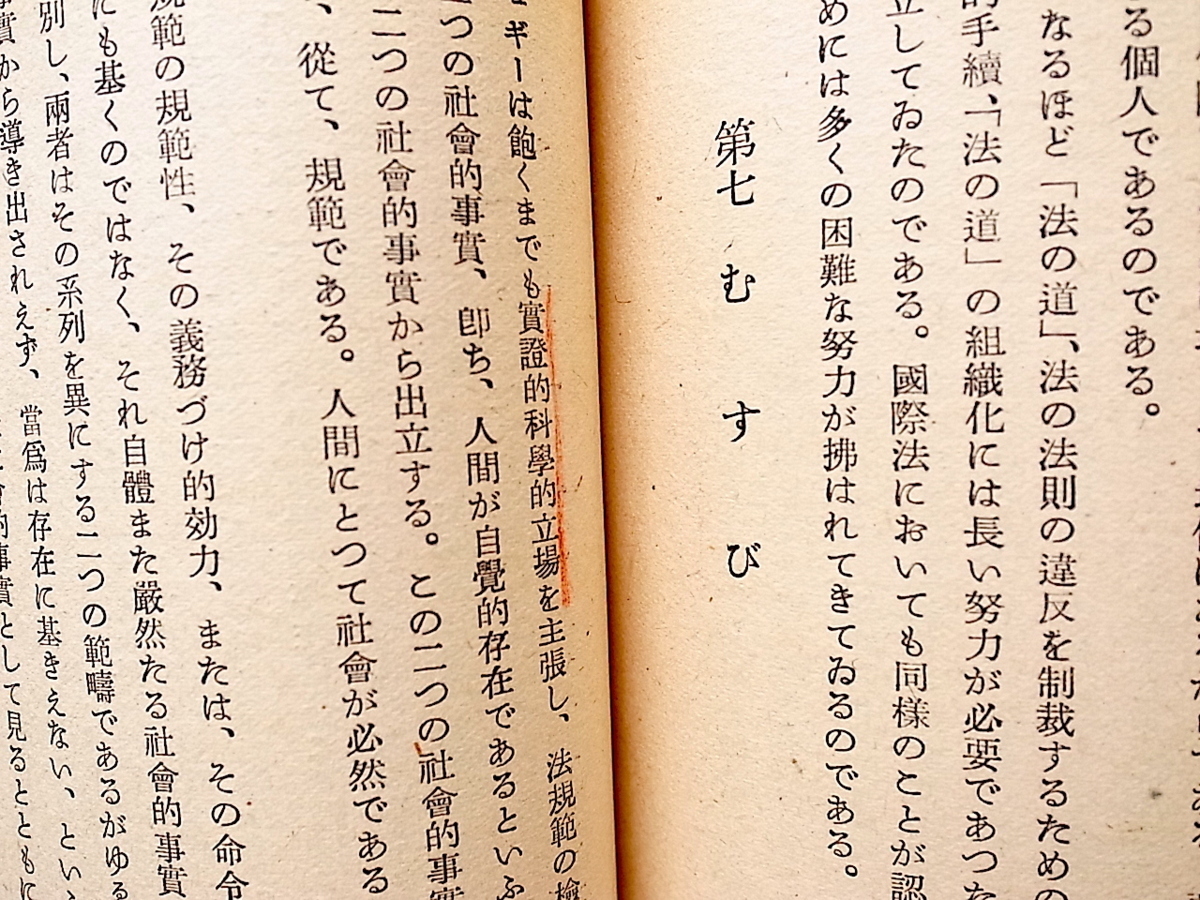 る個人であるのである。
なるほど「法の道」、法の法則の違反を制裁するための
的手續、「法の道」の組織化には長い努力が必要であつた
立してゐたのである。國際法においても同樣のことが認
めには多くの困難な努力が拂はれてきてゐるのである。
第七 むすび
ギーは飽くまでも實證的科學的立場を主張し、法規範の檢
つの社會的事實、卽ち、人間が自覺的存在であるといふ
二つの社會的事實から出立する。この二つの社會的事實
、從て、規範である。人間にとつて社會が必然である
規範の規範性、その義務づけ的効力、または、その命令
にも基くのではなく、それ自體また嚴然たる社會的事實
別し、兩者はその系列を異にする二つの範疇であるがゆる
事實から導き出されえず、當爲は存在に基きえない、といふ
事實として見るとともに